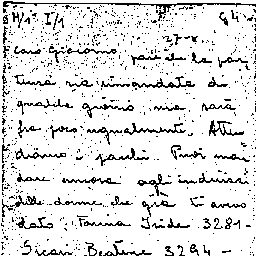 H/1° I/1 94-
27-x
caro Giacomo, pare che la par
tenza sia rimandata di
qualche giorno, ma sarà
fra poco ugualmente. Atten
diamo i pacchi. Puoi man
dare ancora agli indirizzi
delle donne che già ti avevo
dato: Farina Iride 3281-
Sicari Beatrice 3294-